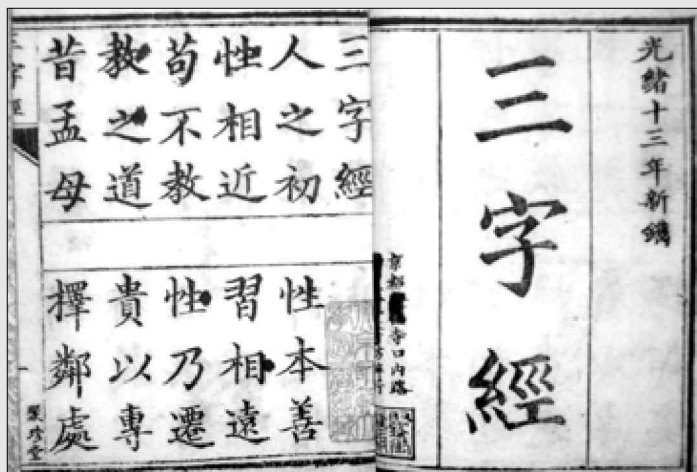 光緒十三年新鐫
三字經
三字經
人之初
性本善
性相近
習相遠
苟不教
性乃遷
教之道
貴以專
昔孟母
擇鄰處
三字經
聚珍堂